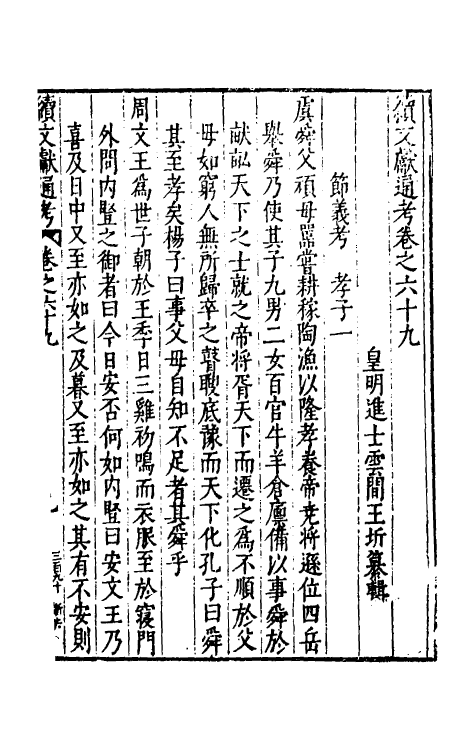 續文獻通考卷之六十九
皇明進士雲間王圻纂輯
節義考　孝子一
虞舜父頑母嚚嘗耕稼陶漁以隆孝養帝堯將遜位四岳
舉舜乃使其子九男二女百官牛羊倉廩備以事舜於
畎畝天下之士就之帝將胥天下而遷之爲不順於父
母如窮人無所歸卒之瞽瞍底豫而天下化孔子曰舜
其至孝矣楊子曰事父母自知不足者其舜乎
周文王爲世子朝於王季日三雞初鳴而衣服至於寢門
外問內豎之御者曰今日安否何如內豎曰安文王乃
喜及日中又至亦如之及暮又至亦如之其有不安則
續文獻通考 卷之六十九